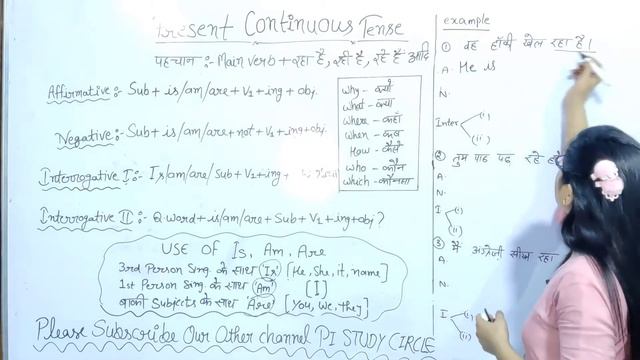 Present Continuous Tense
पहचान :- Main verb + रहा है, रही है, रहे हैं आदि
Affirmative :- Sub + is/am/are + V₁ + ing + obj.
Negative :- Sub + is/am/are + not + V₁ + ing + obj.
Interrogative I :- Is/am/are/ Sub + V₁ + ing +
Interrogative II :- Q.word + is/am/are + Sub + V₁ + ing + obj ?
Why - क्यों
What - क्या
Where - कहाँ
When - कब
How - कैसे
Who - कौन
Which - कौनसा
USE OF Is, Am, Are
3rd Person Sing. के साथ 'Is' [He, She, it, name]
1st Person Sing. के साथ 'Am' [I]
बाकी Subjects के साथ 'Are' [You, We, They]
Please Subscribe Our Other channel PI STUDY CIRCLE
example
① वह हॉकी खेल रहा है।
A. He is
N.
Inter (i)
(ii)
② तुम पाठ पढ़ रहे हो
A.
N.
I (i)
(ii)
③ मैं अंग्रेजी सीख रहा
A.
N.
I (i)
(ii)